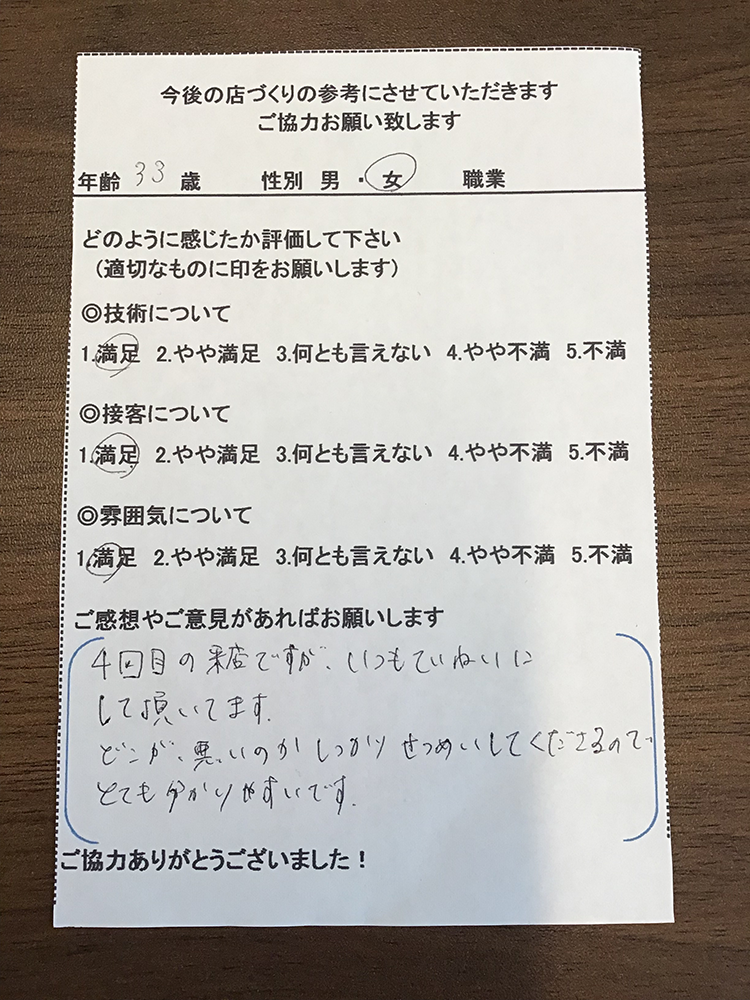 今後の店づくりの参考にさせていただきます
ご協力お願い致します
年齢 33 歳 性別 男 ・ 女 職業
どのように感じたか評価して下さい
(適切なものに印をお願いします)
◎技術について
1.満足 2.やや満足 3.何とも言えない 4.やや不満 5.不満
◎接客について
1.満足 2.やや満足 3.何とも言えない 4.やや不満 5.不満
◎雰囲気について
1.満足 2.やや満足 3.何とも言えない 4.やや不満 5.不満
ご感想やご意見があればお願いします
4回目の来店ですが、いつもていねいに
して頂いてます。
どこが、悪いのかしっかりせつめいしてくださるので
とても分かりやすいです。
ご協力ありがとうございました!